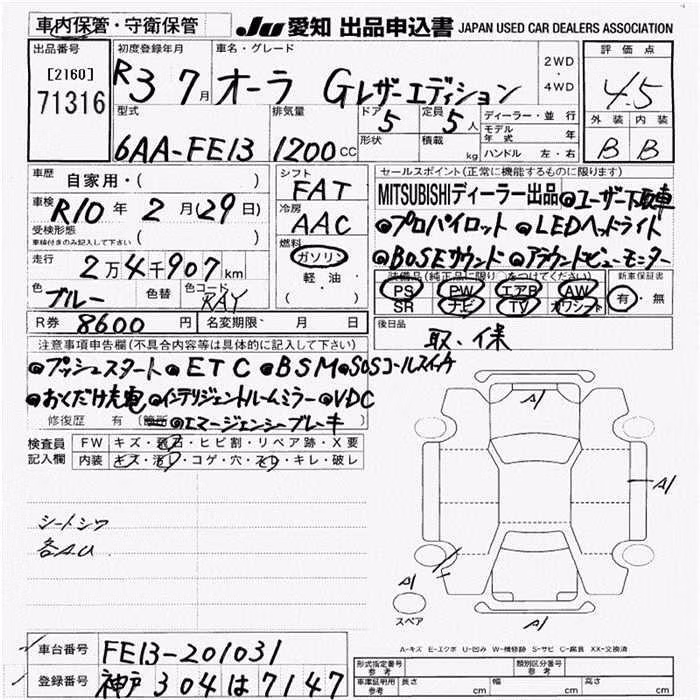 車内保管・守衛保管
JU 愛知 出品申込書 JAPAN USED CAR DEALERS ASSOCIATION
出品番号 初度登録年月 車名・グレード 2WD・4WD 評価点
[2160]
71316
R3 7月 オーラ Gレザーエディション
4.5
型式 排気量 ドア 定員 ディーラー・並行 外装 内装
6AA-FE13 1200CC 5 5人 モデル年式 年 B B
形状 積載 kg ハンドル 左・右
車歴 自家用・( )
シフト FAT
セールスポイント(正常に機能するものに限ります)
車検 R10年2月(29日)
冷房 AAC
MITSUBISHIディーラー出品 ●ユーザー下取車
受検形態 ( )
車検付きのみ記入して下さい
●プロパイロット ●LEDヘッドライト
燃料 ガソリン 軽油 ( )
●BOSEサウンド ●アラウンドビューモニター
走行 2万4千907km
装備品(純正品に限り○をつけてください) 新車保証書
色 ブルー 色替 色コード RAY
PS PW エアB AW 有・無
SR ナビ TV カワシート
R券 8600円 名変期限・ 月 日
後日品 取、保
注意事項申告欄(不具合内容等は具体的に記入して下さい)
●プッシュスタート ●ETC ●BSM ●SOSコールスイッチ
●おくだけ充電 ●インテリジェントルームミラー ●VDC
修復歴 有 ( ●エマージェンシーブレーキ
検査員記入欄 FW キズ・飛石・ヒビ割・リペア跡・X要
内装 キズ・汚レ・コゲ・穴・スレ・キレ・破レ
A1
A1
シートシワ
各A.U
A1
スペア
A1
A-キズ E-エクボ U-凹み W-補修跡 S-サビ C-腐食 XX-交換済
車台番号 FE13-201031
登録番号 神戸 304 は 7147
形式指定番号 参考 類別区分番号 参考
車庫証明用 参考 長さ cm 幅 cm 高さ cm